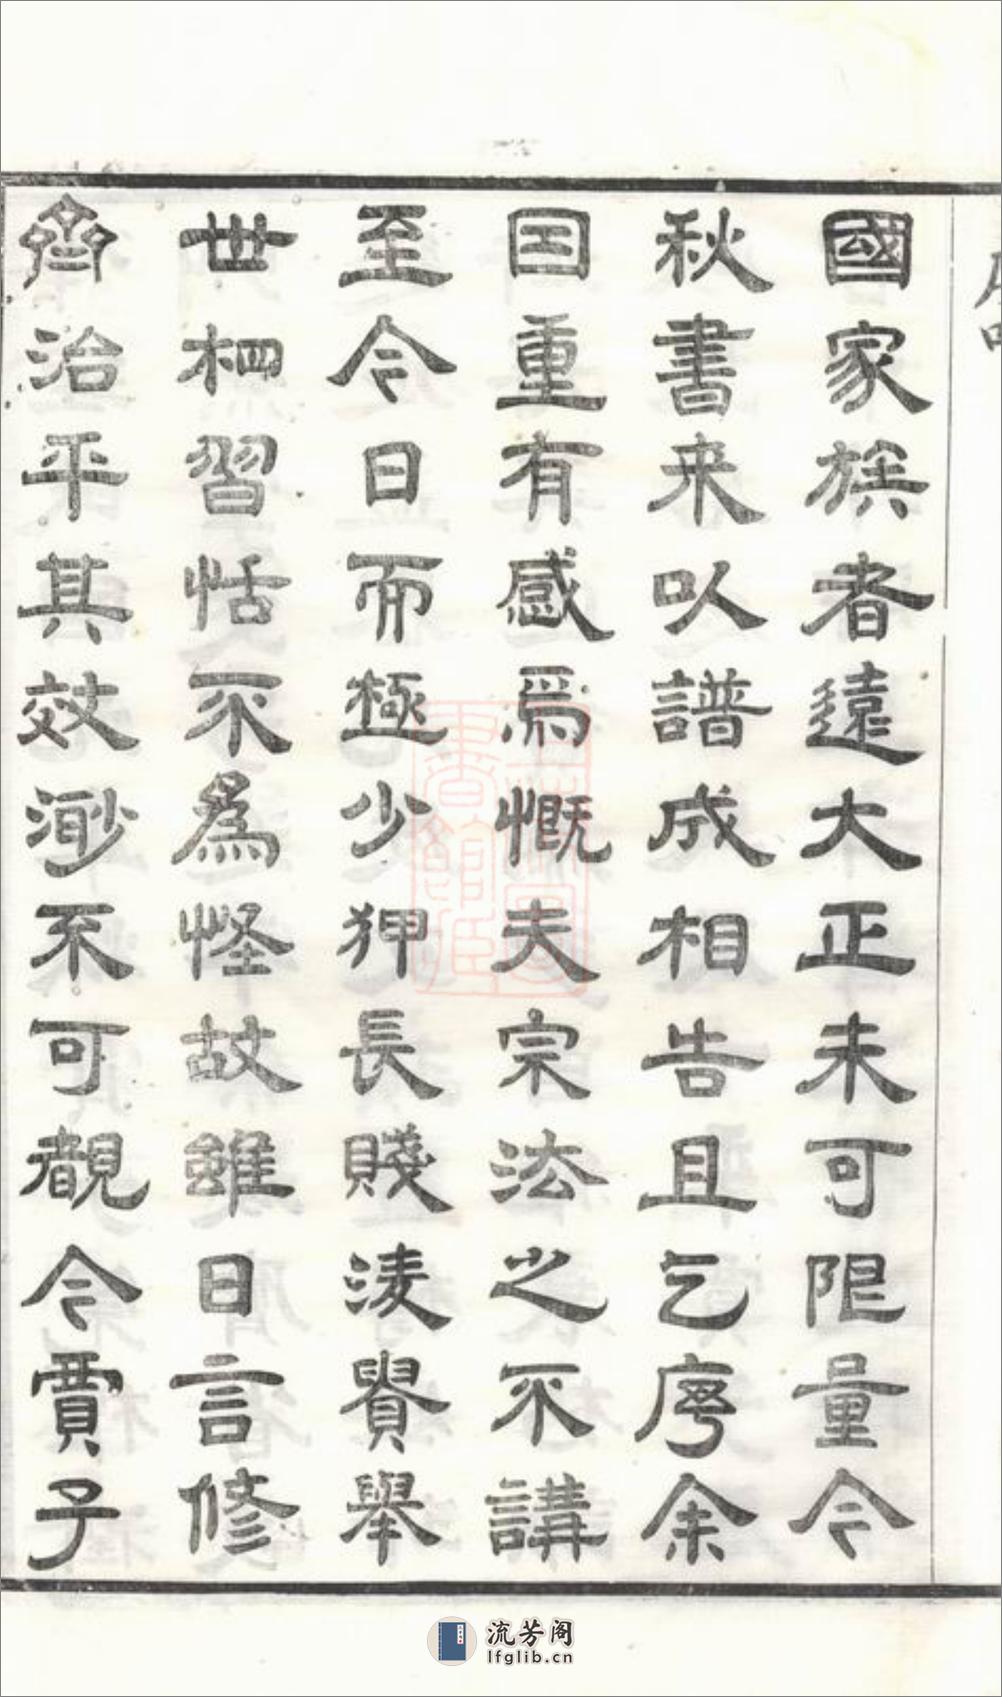 國家族者遠大正未可限量今
秋書来以譜成相告且乞序余
囙重有感焉慨夫宗法之不講
至今日而極少狎長賤淩貴舉
世相習恬不為怪故雖日言修
齊治平其效渺不可覩今賈子
流芳阁
lfglib.cn